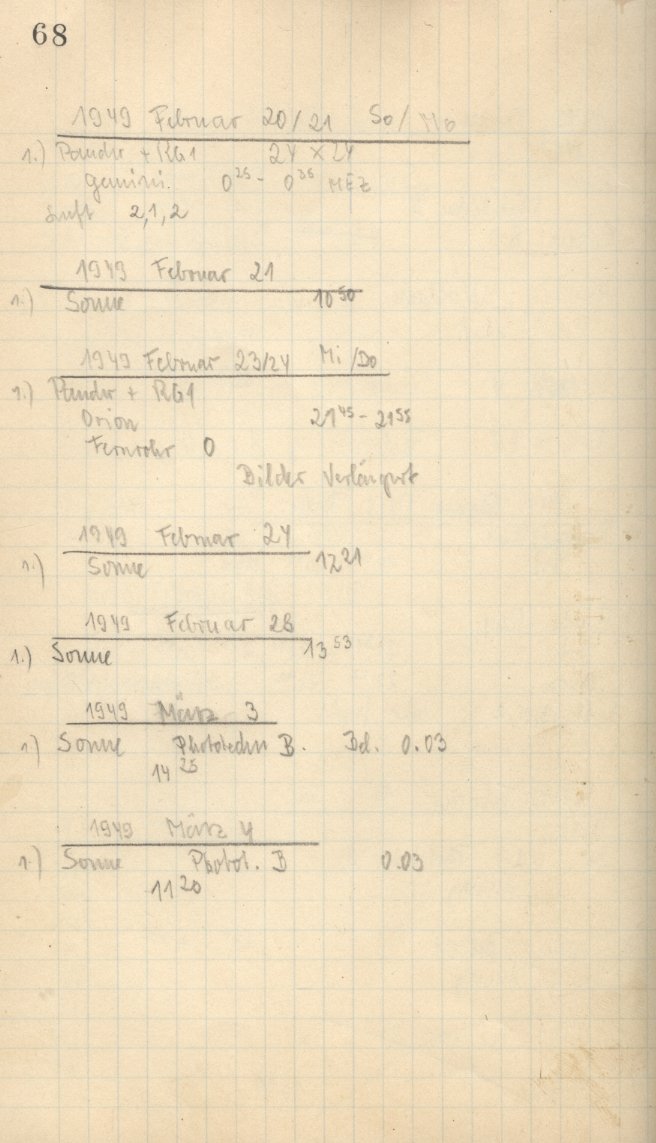 68
1949 Februar 20/21 So/Mo
1.) Pandr + RG1 24 × 24
Gemini. 0 25 - 0 35 MEZ
Luft 2,1,2
1949 Februar 21
1.) Sonne 10 50
1949 Februar 23/24 Mi/Do
1.) Pandr + RG1
Orion 21 45 - 21 55
Fernrohr O
Bilder Verlängert
1949 Februar 24
1.) Sonne 12 21
1949 Februar 28
1.) Sonne 13 53
1949 März 3
1.) Sonne Phototechn B. Bel. 0.03
14 25
1949 März 4
1.) Sonne Photot. B 0.03
11 20